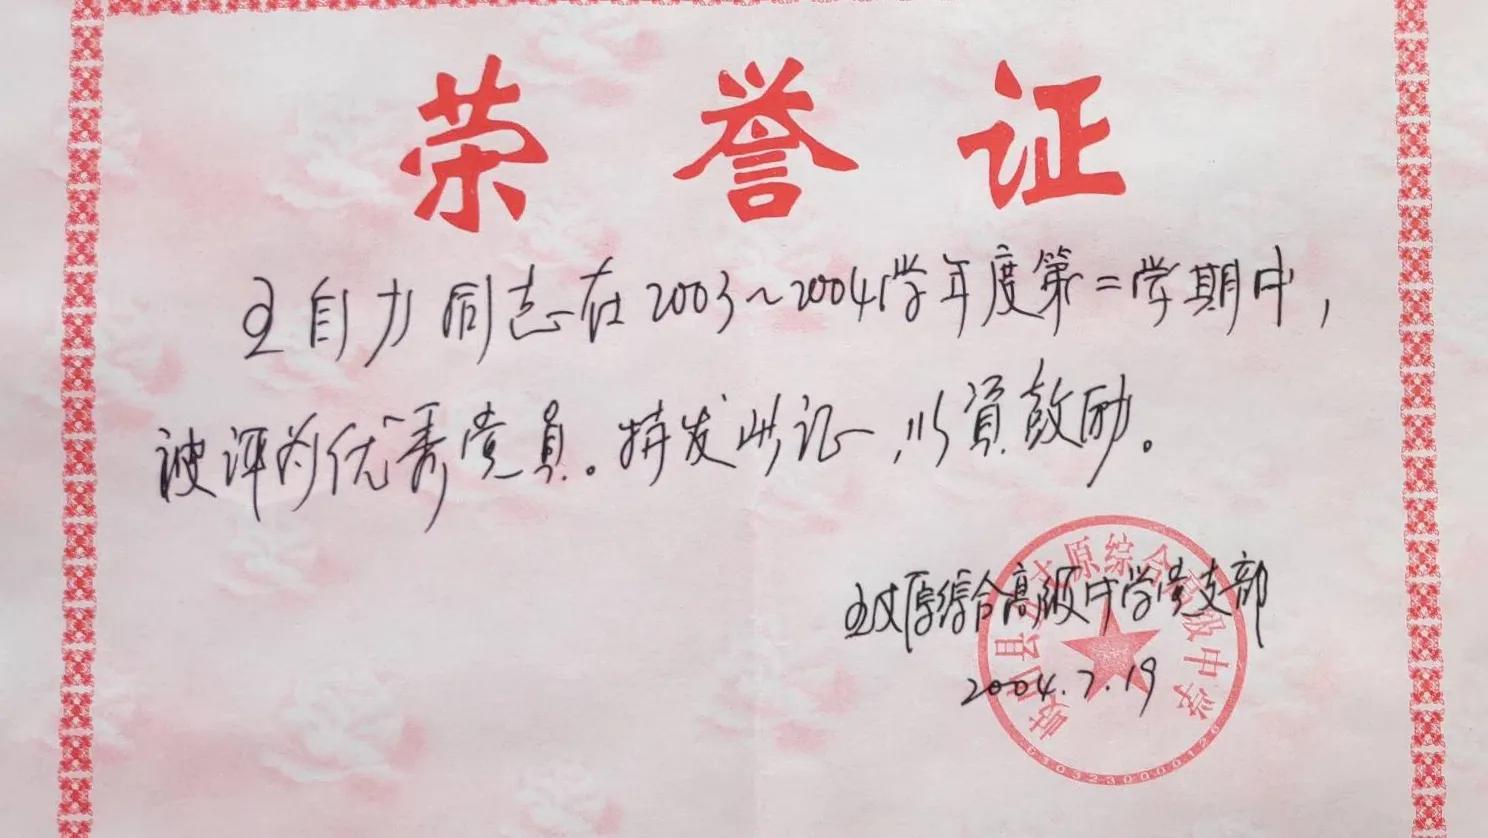 荣誉证
王自力同志在2003~2004学年度第二学期中，
被评为优秀党员。特发此证，以资鼓励。
五丈原综合高级中学党支部
2004.7.19
岐山县五丈原综合高级中学
6103230000126